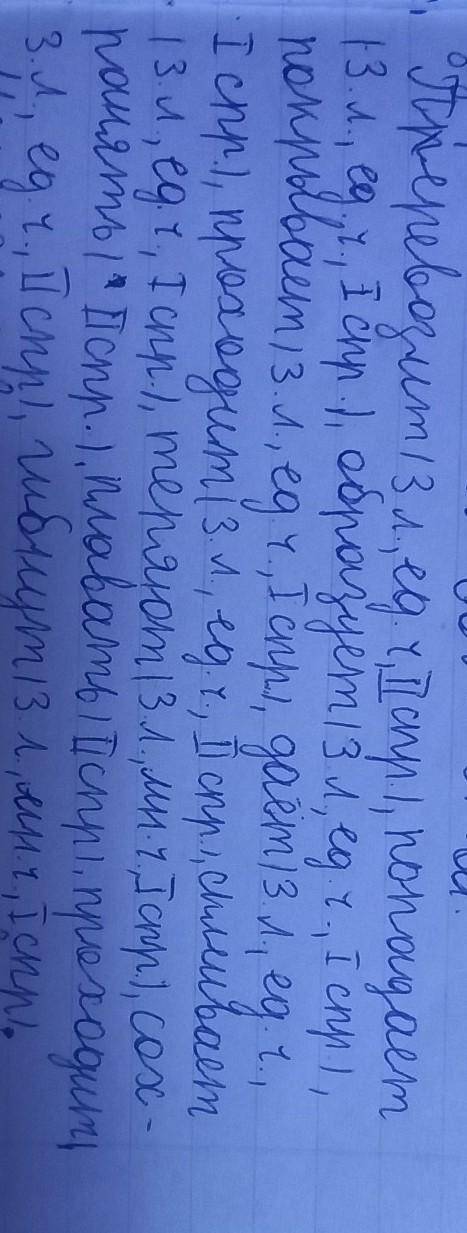 Переводит (3 л., ед. ч., II спр.), попадает
(3 л., ед. ч., I спр.), образует (3 л., ед. ч., I спр.),
покрывает (3 л., ед. ч., I спр.), даёт (3 л., ед. ч.,
I спр.), проходит (3 л., ед. ч., II спр.), смывает
(3 л., ед. ч., I спр.), теряют (3 л., мн. ч., I спр.), сох-
ранять ( II спр.), плавать (II спр.), проходит(
3 л., ед. ч., II спр), гибнут (3 л., мн. ч., I спр).